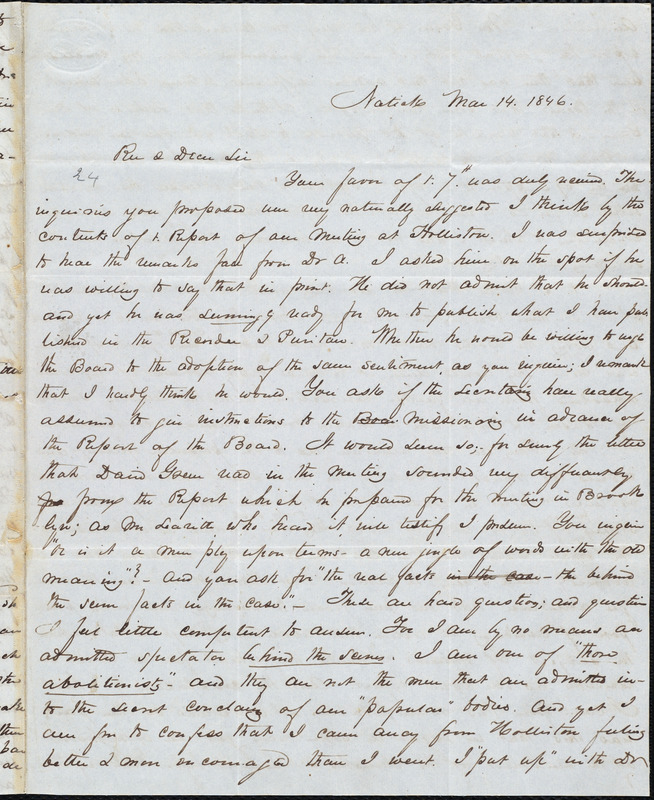 Natick Mar 14. 1846.
Rev & Dear Sir
24
Your favor of t. 7th was duly receivd. The
inquiries you proposed were very naturally suggested I think by the
contents of t. Report of our Meeting at Holliston. I was surprised
to hear the remarks fall from Dr A. I asked him on the spot if he
was willing to say that in print. He did not admit that he should-
and yet he was seemingly ready for me to publish what I have pub
lished in the Recorder & Puritan. Whether he would be willing to urge
the Board to the adoption of the same sentiment, as you inquire; I remark
that I hardly think he would. You ask if the Secretaries have really
assumed to give instructions to the Boar missionaries in advance of
the Report of the Board. It would seem so; for surely the letter
that David Green read in the meeting sounded very differently
from the Report which he prepared for the meeting in Brook
lyn; as Mr Leavitt who heard it, will testify I presum. You inquire
"Or is it a mere play upon terms - a new jingle of words with the old
meaning"? - and you ask for "the real facts in the case - the behind
the scene facts in the case." - These are hard questions; and questions
I feel little competent to answer. For I am by no means an
admitted spectator behind the scenes. I am one of "those
abolitionists" - and they are not the men that are admitted in-
to the secret conclaves of our "popular" bodies. And yet I
am free to confess that I came away from Holliston feeling
better & more encouraged than I went. I "put up" with Dr